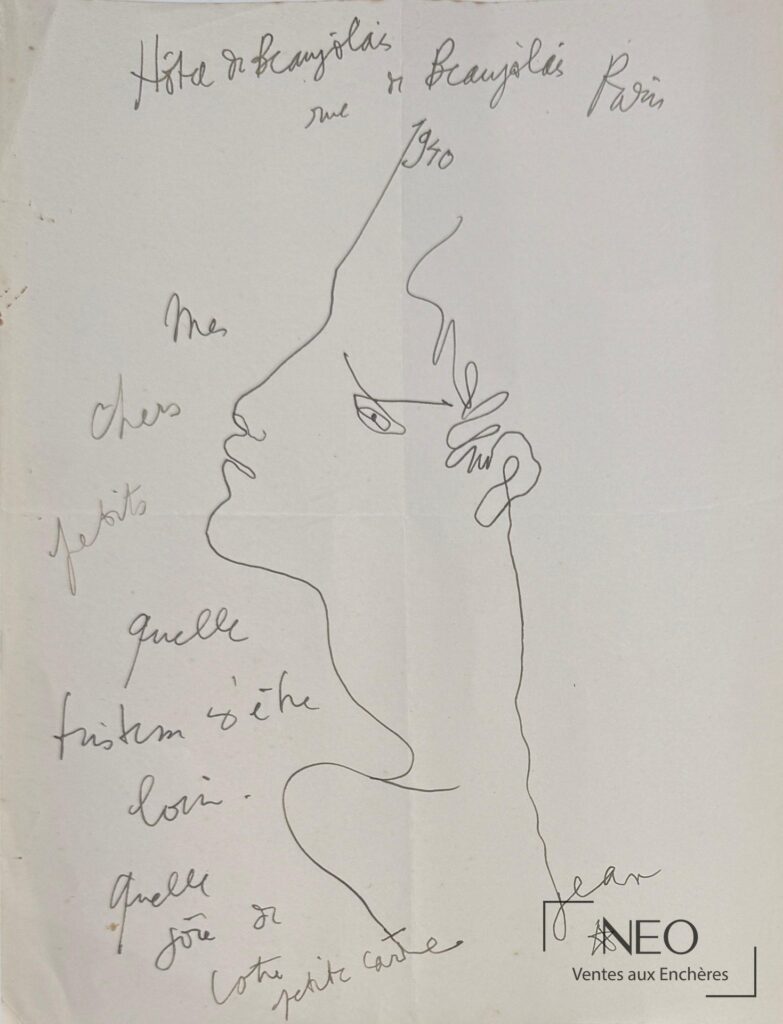 Hôtel de Beaujolais
rue de Beaujolais Paris
1940
Mes
chers
petits
quelle
tristesse d'être
loin.
Quelle
joie de
votre
petite carte
Jean
NEO
Ventes aux Enchères